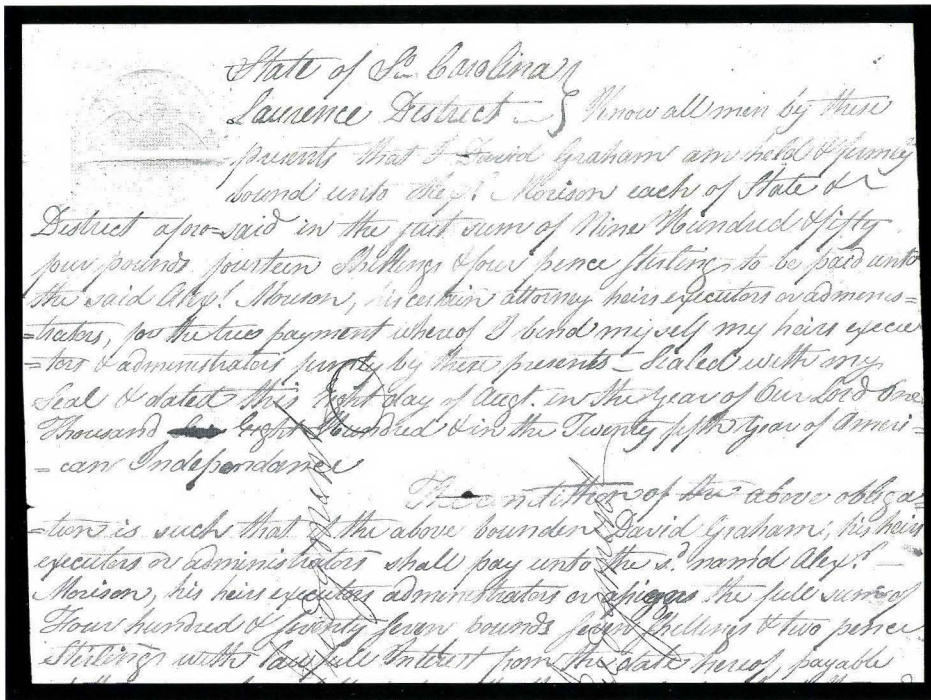 State of So. Carolina
Laurence District } Know all men by these
presents that I David Graham am held & firmly
bound unto Alexr. Morison each of State &
District afore=said in the just sum of Nine Hundred & fifty
four pounds fourteen Shillings & four pence Sterling to be paid unto
the said Alexr. Morison, his certain attorney heirs executors or adminis=
=trators, for the true payment whereof I bind myself my heirs execu
=tors & administrators firmly by these presents – Sealed with my
Seal & dated this eight day of Augt. in the year of Our Lord One
Thousand Eight Hundred & in the Twenty fifth Year of Ameri-
=can Independance
The condition of the above obliga
=tion is such that if the above bounden David Graham, his heirs
executors or administrators shall pay unto the sd. nam'd Alexr. –
Morison, his heirs executors administrators or assigns the full sum of
Four hundred & seventy seven pounds seven shillings & two pence
Sterling with lawfull Interest from the date hereof, payable